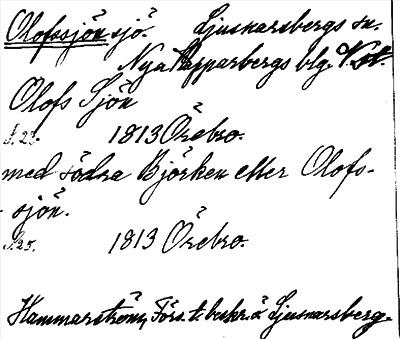 Olofssjön sjö. Ljusnarsbergs sn.
Nya Kopparbergs blg. Vstm.
Olofs Sjön
S. 23. 1813 Örebro.
med södra Björken eller Olofs-
sjön.
S. 25. 1813 Örebro.
Hammarström, Förs. t. beskr. ö. Ljusnarsberg.